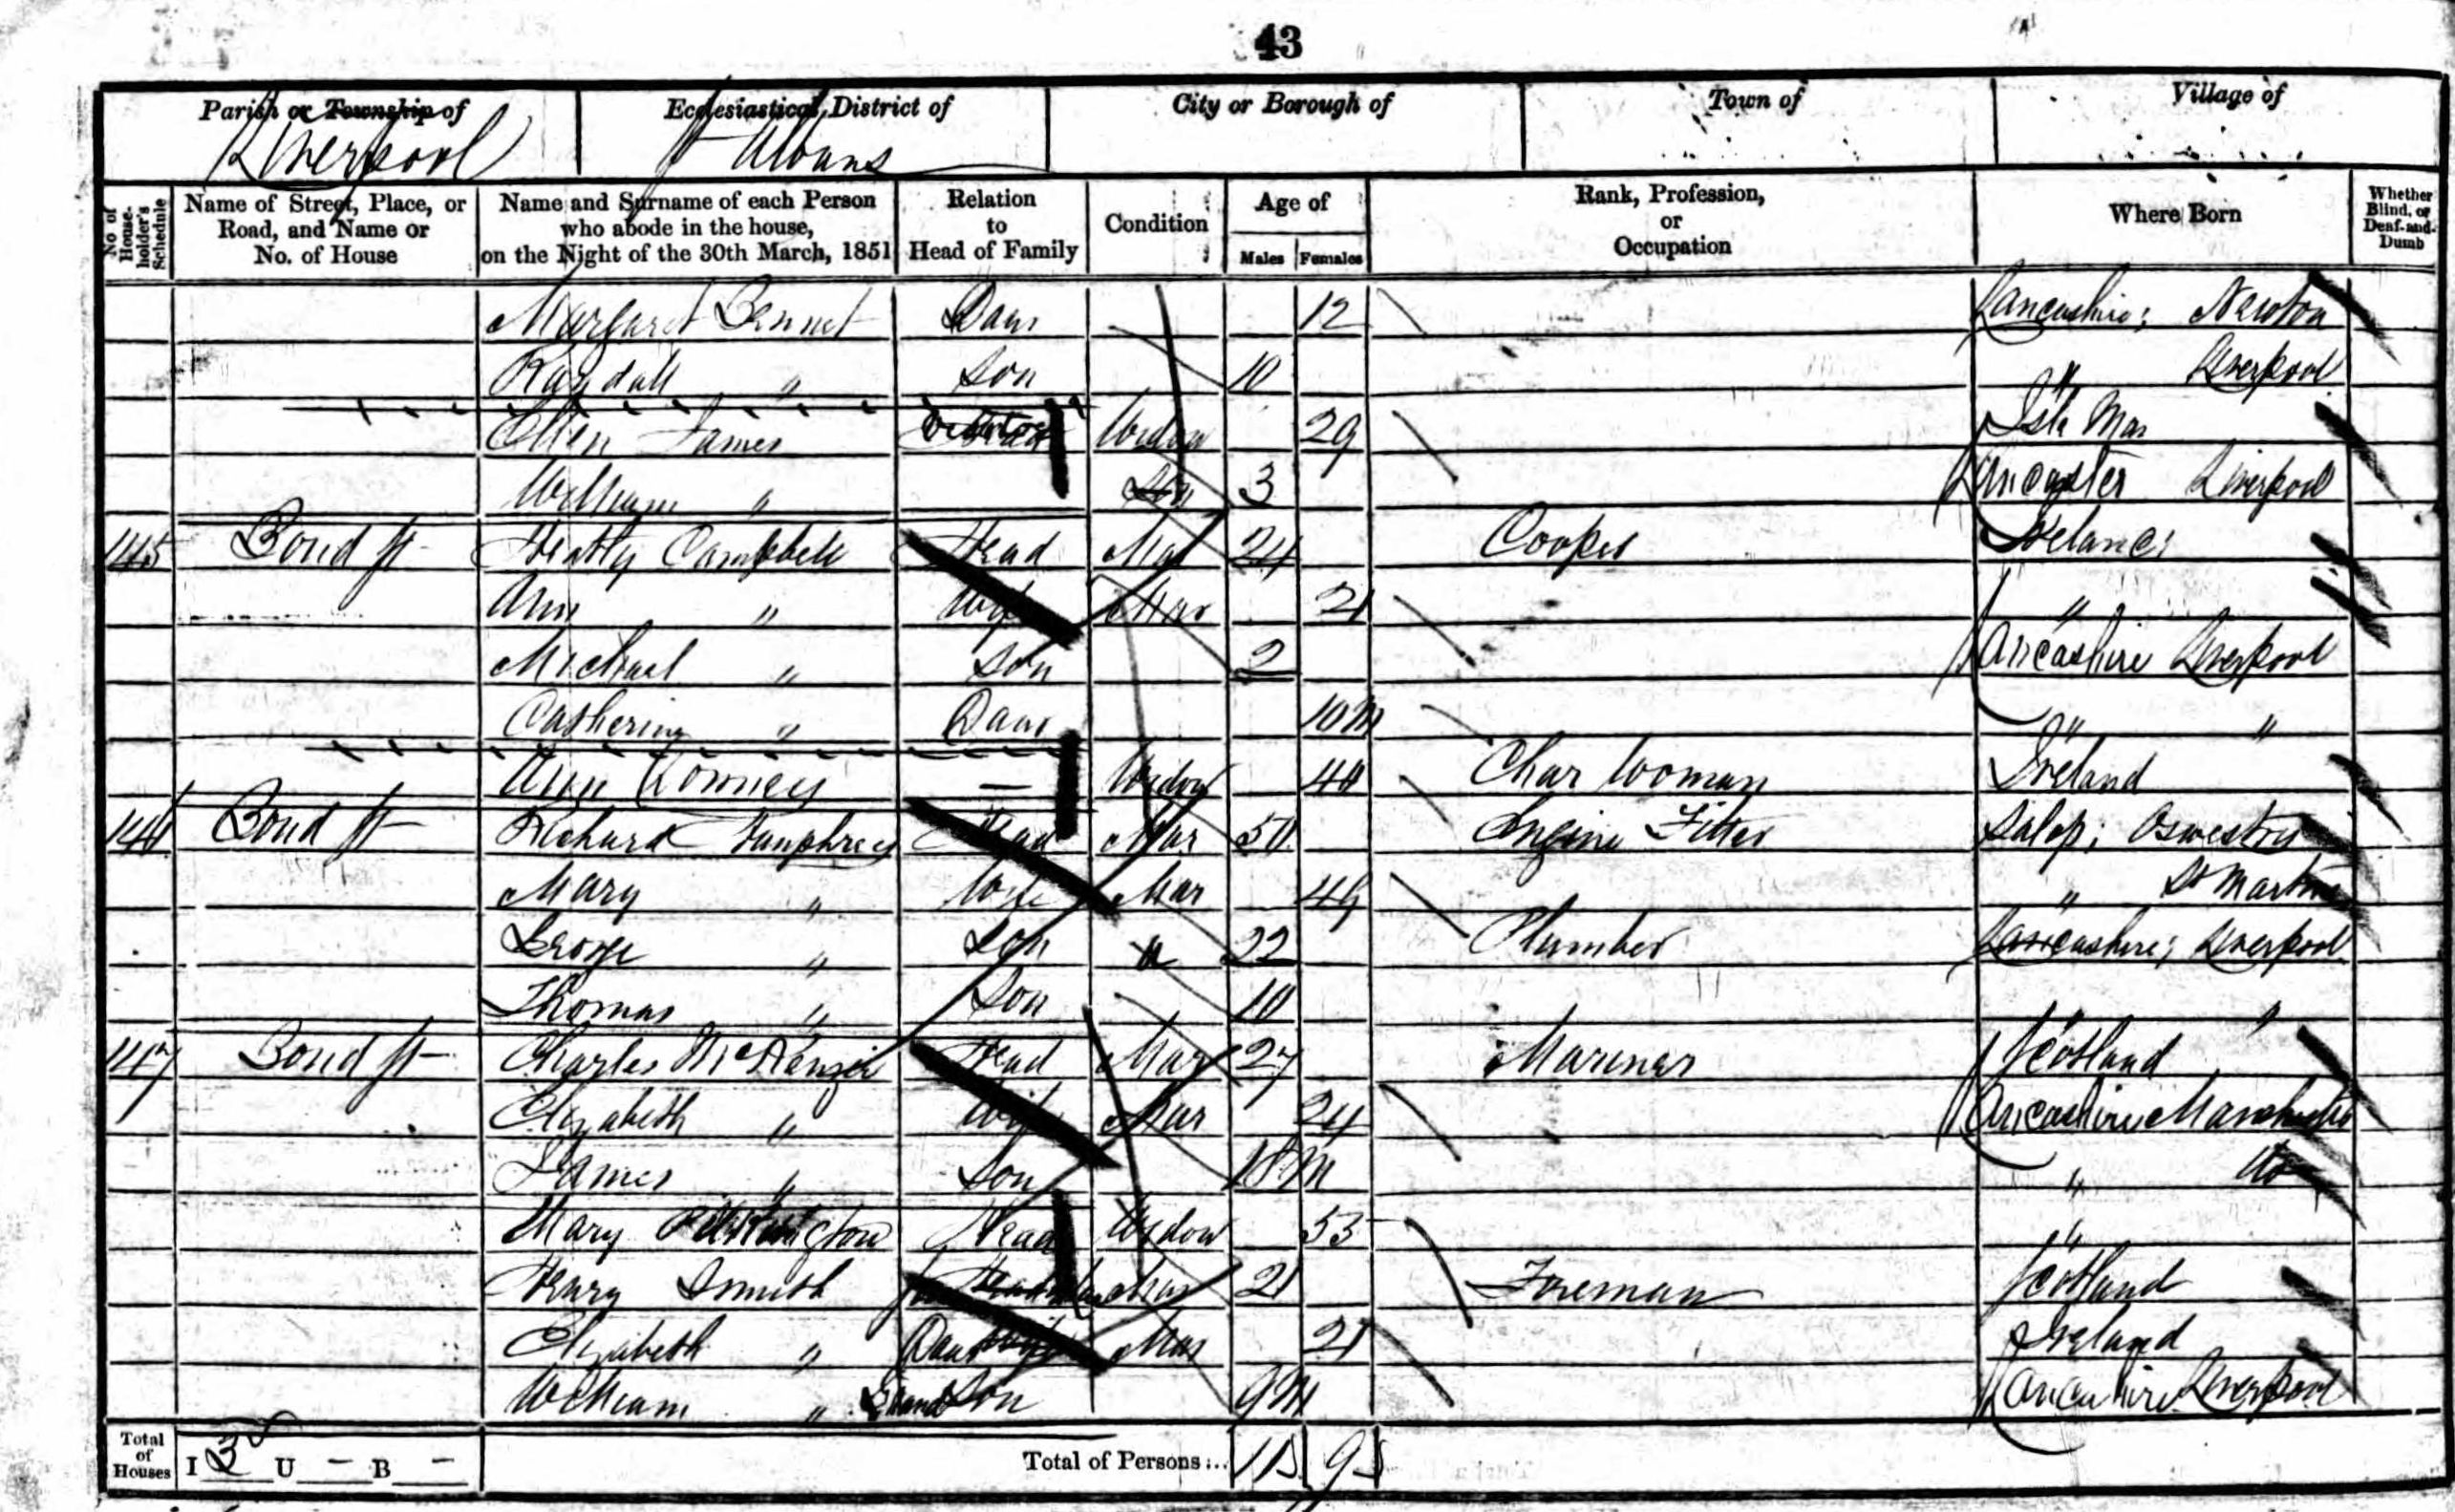 43
Parish or Township of Ecclesiastical District of City or Borough of Town of Village of
Liverpool St Albans
No of House-holder's Schedule Name of Street, Place, or Road, and Name or No. of House Name and Surname of each Person who abode in the house, on the Night of the 30th March, 1851 Relation to Head of Family Condition Age of Males Females Rank, Profession, or Occupation Where Born Whether Blind, or Deaf-and-Dumb
Margaret Bennet Daur 12 Lancashire; Newton
Randall " Son 10 " Liverpool
Ellen James Widow 29 Isle Man
William " Son 3 Lancaster Liverpool
145 Bond St Campbell Head Mar 24 Cooper Ireland
Ann " Wife Mar 21 "
Michael " Son 2 Lancashire Liverpool
Catherine " Daur 10m " "
Ann Widow 40 Char Woman Ireland
146 Bond St Richard Humphreys Head Mar 50 Engine Fitter Salop; Oswestry
Mary " Wife Mar " St Martins
George " Son U 22 Plumber Lancashire; Liverpool
Thomas " Son 10 " "
147 Bond St Charles McKenzie Head Mar 27 Mariner Scotland
Elizabeth " Wife Mar 24 Lancashire Manchester
James " Son 18m " do
Mary Head Widow 53 "
Henry Smith Mar 21 Foreman Scotland
Elizabeth " Daur Mar 21 Ireland
William " Grand Son 9m Lancashire Liverpool
Total of Houses I 3 U - B - Total of Persons... 11 9